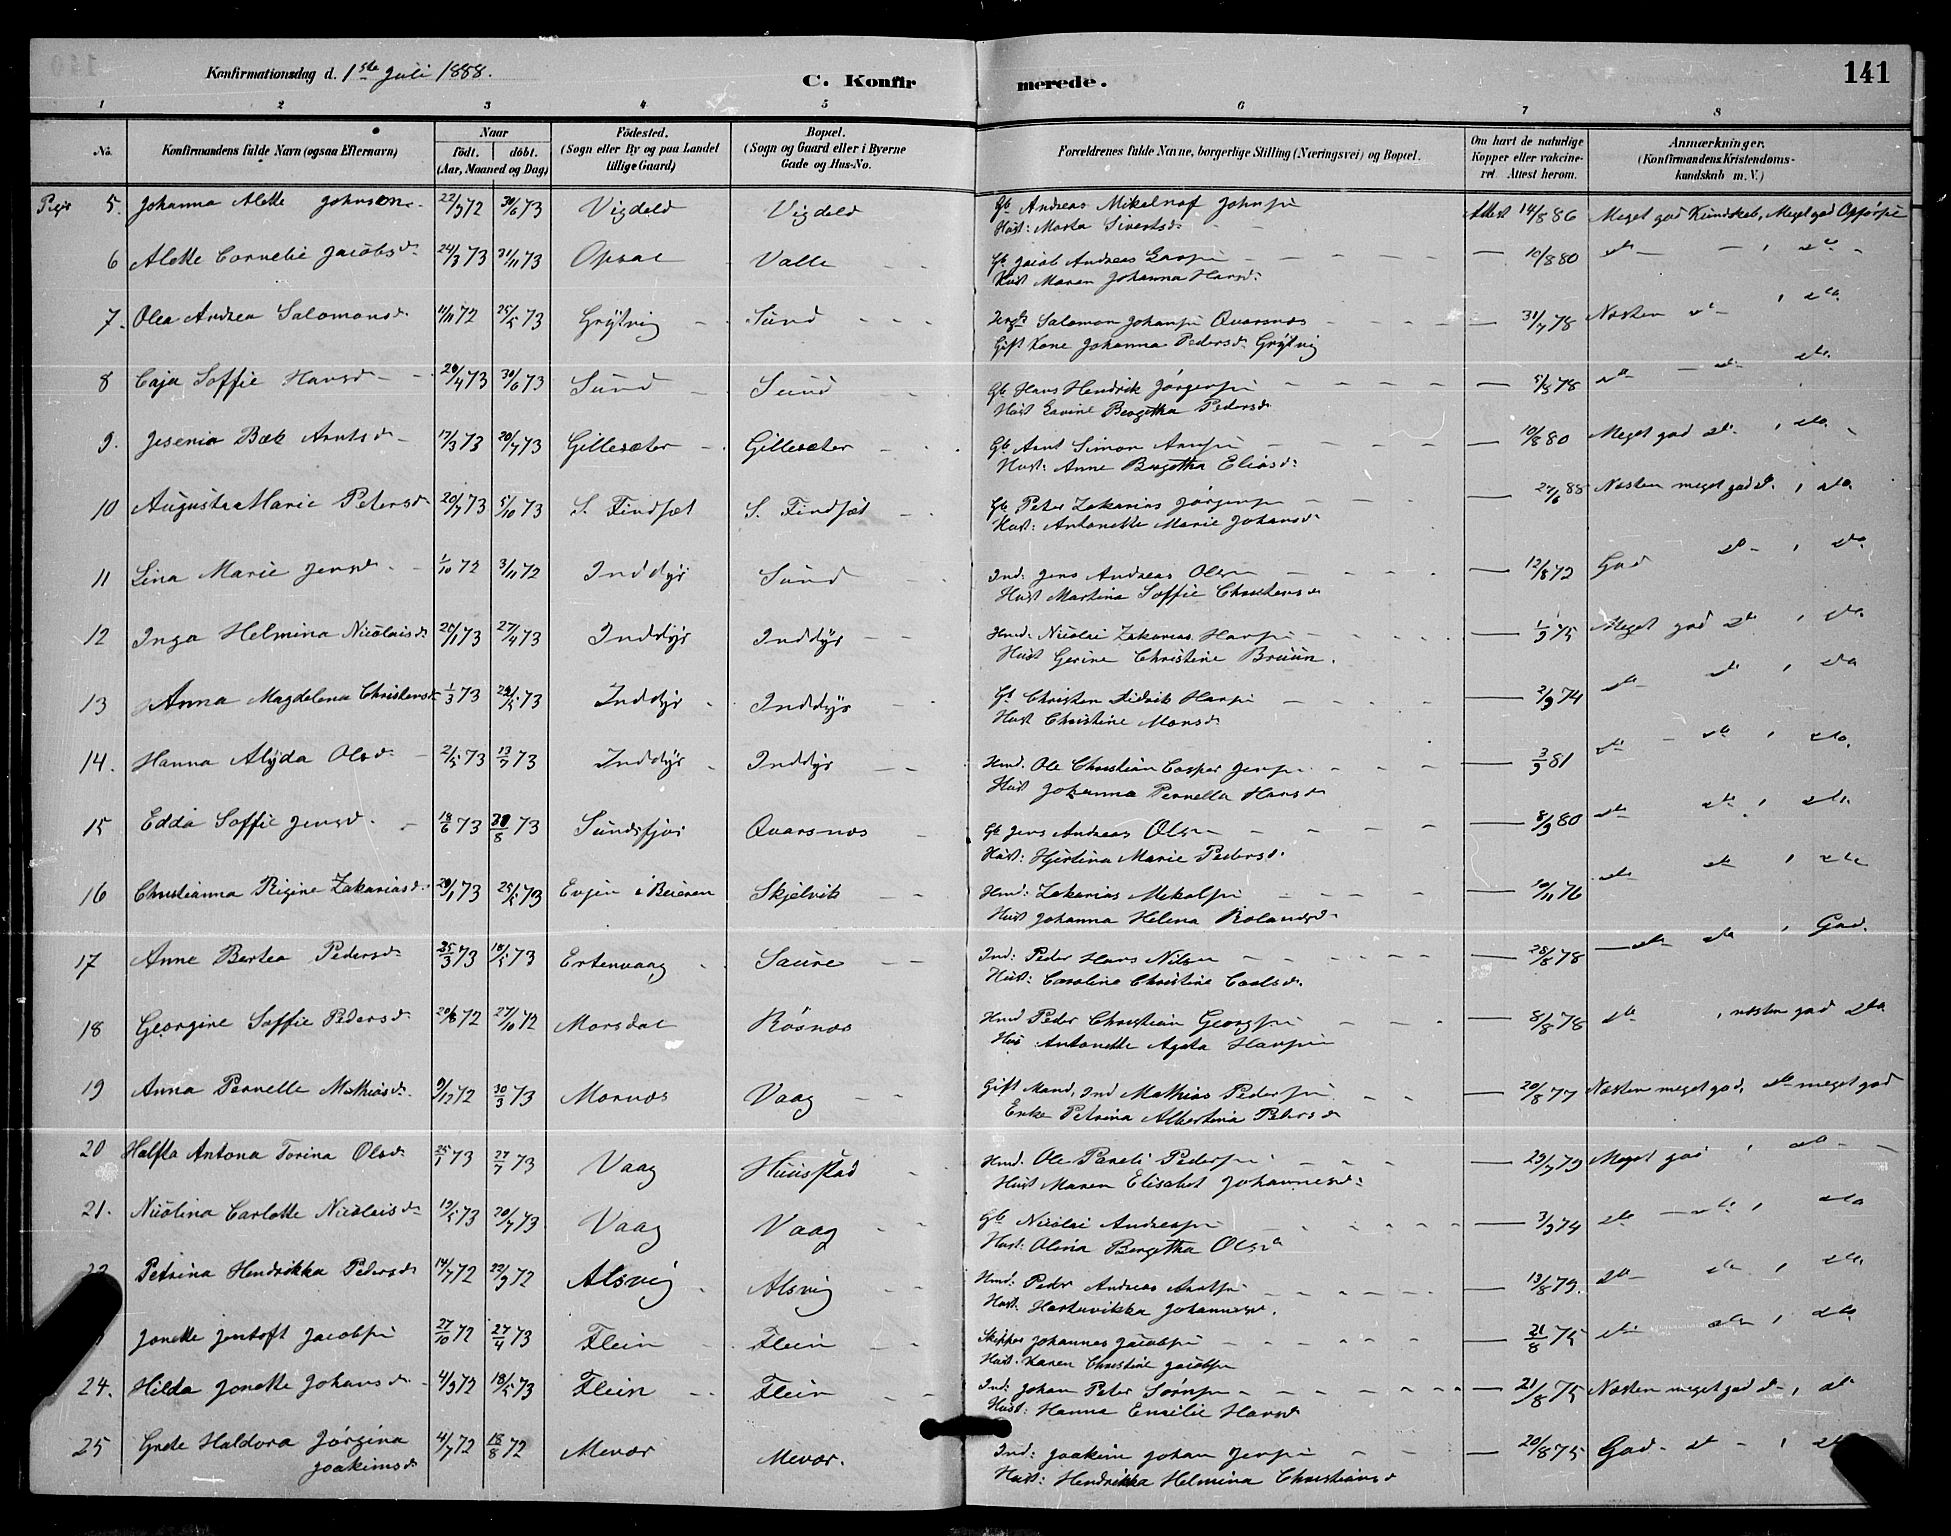 Konfirmationsdag d. 1ste Juli 1888.
C. Konfirmerede.
141
1 2 3 4 5 6 7 8
No.
Konfirmandens fulde Navn (ogsaa Efternavn)
Naar
födt. döbt.
(Aar, Maaned og Dag)
Födested.
(Sogn eller By og paa Landet
tillige Gaard)
Bopæl.
(Sogn og Gaard eller i Byerne
Gade og Hus-No.
Forældrenes fulde Navne, borgerlige Stilling (Næringsvei) og Bopæl.
Om havt de naturlige
Kopper eller vakcine-
ret. Attest herom.
Anmærkninger.
(Konfirmandens Kristendoms-
kundskab m. V.)
Piger 5. Johanna Alette Johnsen 22/9 72 30/6 73 Vigdeld Vigdeld Gb Andreas Mikal Johnsen Attest 14/8 86 Meget god Kundskab, Meget god Opførsel
Hust: Marta Sivertsd.
6 Alette Cornelie Jacobsd. 24/3 73 21/11 73 Opsal Valle Gb Jacob Andreas — 10/8 80 dto — , dto
Hust Maren Johanna Hansd:
7. Olea Andrea Salomonsd. 11/11 72 25/5 73 Grytvig Sund Salomon Johansen Qvarsnæs — 31/7 78 Næsten dto , dto
Gift Kone Johanna Pedersd. Grytvig
8 Caja Soffie Hansd. 20/4 73 30/6 73 Sund Sund Gb Hans Hendrik Jørgensen — 5/8 78 dto — dto dto
Hust Bergetha Pedersd.
9. Jesenia Bæk Arntsd. 17/3 73 20/7 73 Gillesæter Gillesæter Gb Arnt Simon — 10/8 80 Meget god dto , dto
Hust: Anne Bergetha Eliasd:
10 Augusta Marie Petersd. 20/7 73 5/10 73 S. Findset S. Findset Gb Peter Zakarias Jørgensen — 27/6 88 Næsten meget god dto , dto
Hust: Antonette Marie Johansd.
11 Lina Marie Jensd. 1/10 72 3/11 72 Inddyr Sund Ind: Jens Andreas Olsen — 12/8 72 God dto , dto
Hust Martina Soffie Christensd.
12 Inga Helmina Nicolaisd. 20/1 73 27/4 73 Inddyr Inddyr Hmd: Nicolai Zakarias Hansen — 1/9 75 Meget god dto , dto
Hust Gerine Christine Bruun.
13 Anna Magdelena Christensd. 1/3 73 22/5 73 Inddyr Inddyr Gb Christen Didrik Hansen — 2/9 74 dto dto , dto
Hust Christine Monsd.
14. Hanna Alyda Olsd. 2/5 73 13/7 73 Inddyr Inddyr Hmd. Ole Christian Casper Jensen — 3/9 81 dto — dto , dto
Hust Johanna Pernella Hansd.
15 Edda Soffie Jensd. 18/6 73 31/8 73 Sundsfjor Qvarsnæs Gb Jens Andreas Olsen — 8/9 80 dto dto , dto
Hust: Hjertina Marie Pedersd.
16 Christianna Regine Zakariasd. 20/1 73 25/5 73 Evjen i Beieren Skjelvik Hmd: Zakarias Mikalsen — 10/11 76 dto dto , dto
Hust Johanna Helena Rolandsd.
17 Anne Bertea Pedersd. 25/3 73 18/5 73 Ertenvaag Saure Ind: Peder Hans Nilsen — 28/8 78 — dto dto , God.
Hust: Caroline Christine Carlsd.
18 Georgine Soffie Pedersd. 20/8 72 27/10 72 Morsdal Røsnæs Hmd Peder Christian Georgsen — 8/8 78 dto , næsten god dto
Hus Antonette Agata Hansen
19 Anna Pernelle Mathiasd. 9/12 72 30/3 73 Mornæs Vaag Gift Mand, Ind Mathias Pedersen — 20/8 77 Næsten meget god, dto meget god
Enke Petrina Albertina Petersd
20 Halfta Antona Torina Olsd. 25/1 73 27/7 73 Vaag Huusstad Hmd. Ole Pareli Pedersen — 29/7 79 Meget god , dto —
Hust Maren Elisabet Johannesd:
21. Nicolina Carlotte Nicolaisd. 19/5 73 20/7 73 Vaag Vaag Gb Nicolai Andreasen — 3/9 74 dto — dto , dto
Hust: Olava Bergetha Olsd.
Petrina Hendrikka Pedersd. 14/7 72 22/9 72 Alsvig Alsvig Hmd: Peder Andreas — 13/8 79. dto dto , dto
Hust. Johannesd.
Jonette Jentoft Jacobsen 27/10 72 27/4 73 Flein Flein Skipper Johannes Jacobsen — 21/8 75 dto dto , dto
Hust. Karen Christine Jacobsen
24. Hilda Jonette Johansd. 4/9 72 18/5 73 Flein Flein Ind: Johan Peter Sørensen — 21/8 75 Næsten meget god d , dto
Hust: Hanna Emilie Hansd
25 Grete Haldora Jørgina 4/7 72 18/8 72 Mevær Mevær. Ind: Joakim Johan Jensen — 20/8 75 God — dto — , dto
Joakimsd. Hust: Hendrikka Helmina Christiansd